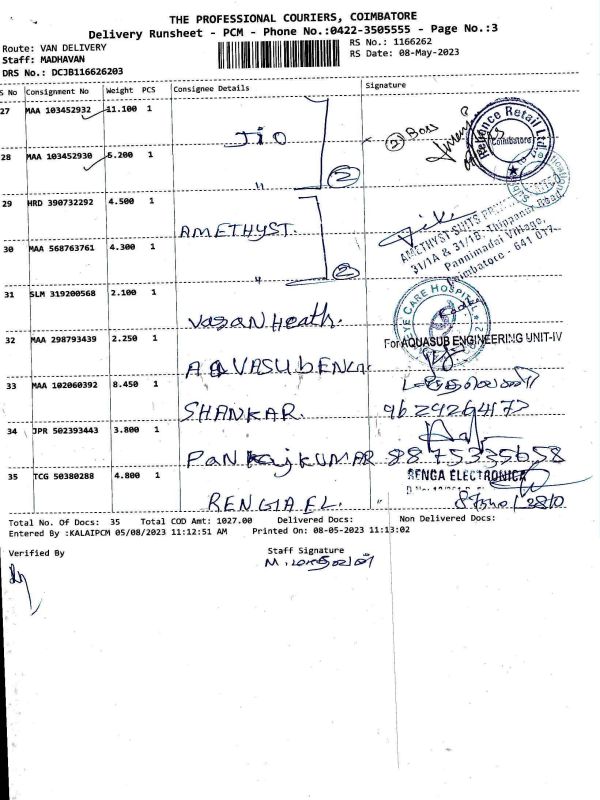 THE PROFESSIONAL COURIERS, COIMBATORE
Delivery Runsheet - PCM - Phone No.:0422-3505555 - Page No.:3
Route: VAN DELIVERY
RS No.: 1166262
Staff: MADHAVAN
RS Date: 08-May-2023
DRS No.: DCJB116626203
S No Consignment No Weight PCS Consignee Details Signature
27 MAA 103452932 11.100 1
JIO
(2) Boss
Reliance Retail Ltd.
Coimbatore
28 MAA 103452930 5.200 1
" (2)
29 HRD 390732292 4.500 1
AMETHYST.
AMETHYST SUITS
31/1A & 31/1B, Thippanur Road
Pannimadai Village,
Coimbatore - 641 017.
30 MAA 568763761 4.300 1
" (2)
31 SLM 319200568 2.100 1
Vasan Heath.
EYE CARE HOSPITAL
32 MAA 298793439 2.250 1
For AQUASUB ENGINEERING UNIT-IV
33 MAA 102060392 8.450 1
SHANKAR.
34 JPR 502393443 3.800 1
PANKAJ KUMAR
8875335658
35 TCG 50380288 4.800 1
RENGA ELECTRONICA
RENGIA EL.
Total No. Of Docs: 35 Total COD Amt: 1027.00 Delivered Docs: Non Delivered Docs:
Entered By :KALAIPCM 05/08/2023 11:12:51 AM Printed On: 08-05-2023 11:13:02
Verified By
Staff Signature
M. மாதவன்